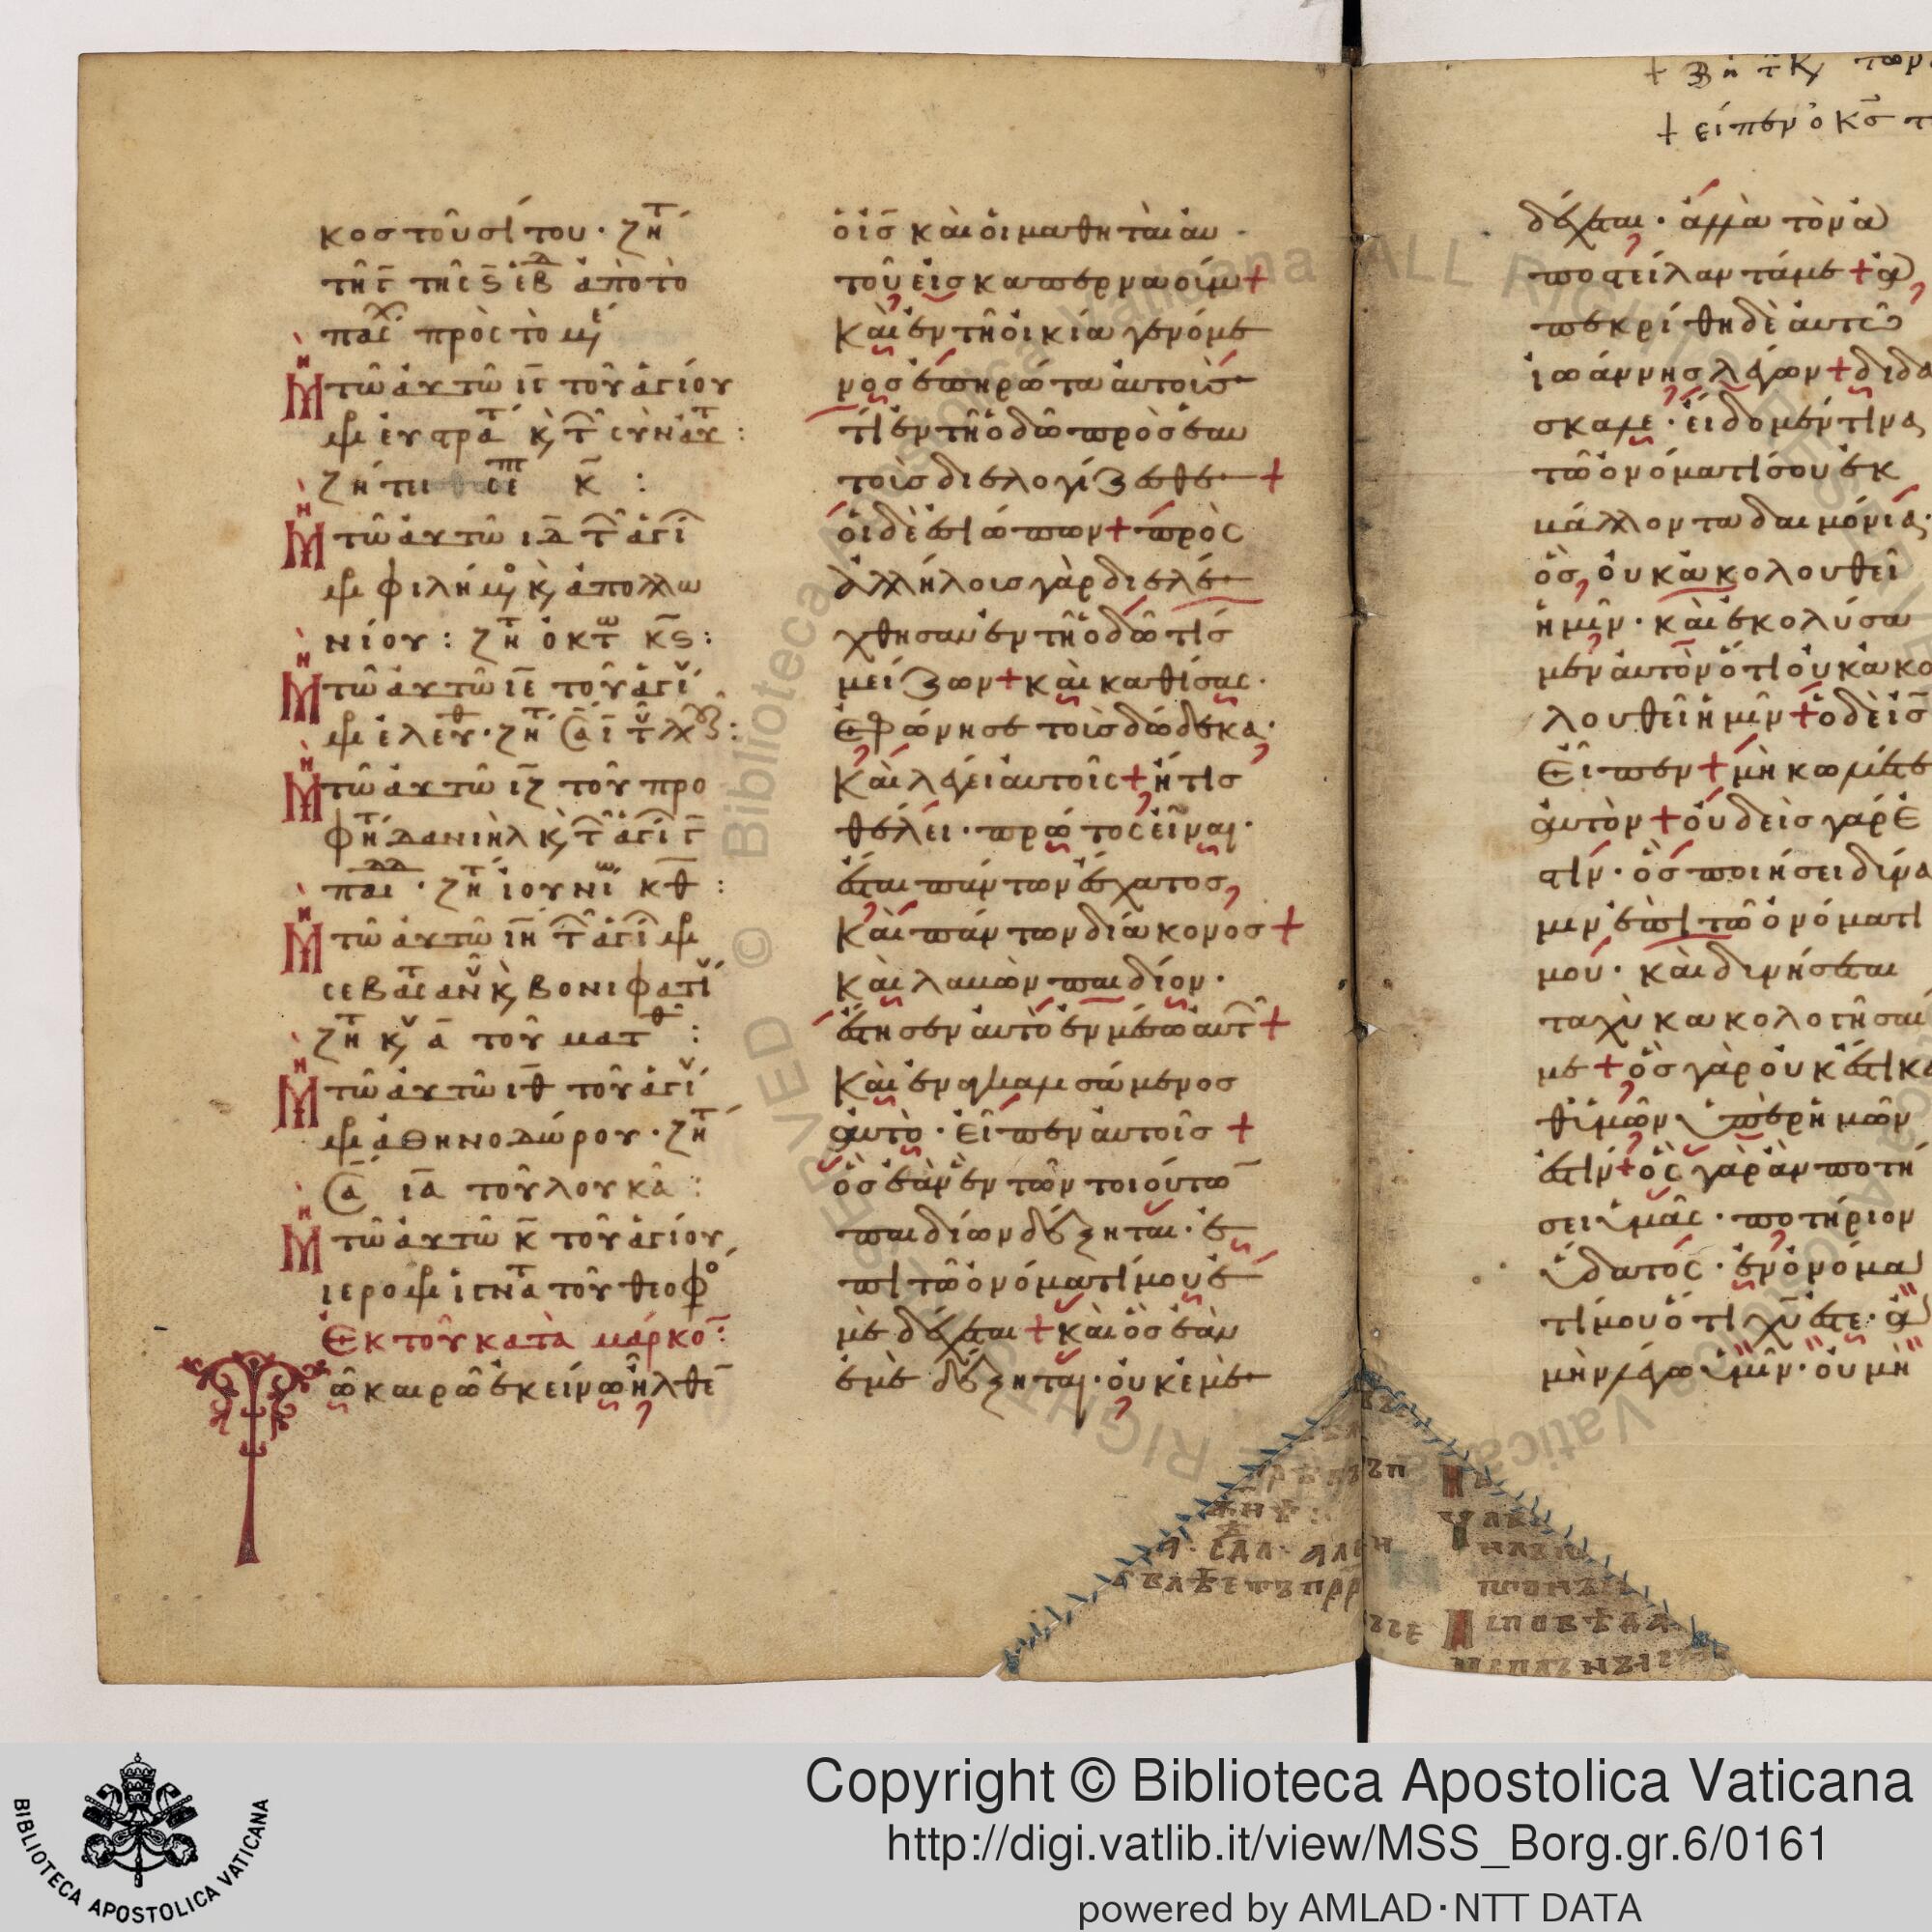 κοσ τοῦ σίτου · ζη
τῆ γ̅ τῆς ς̅ ἑβδ ἀπὸ τὸ
πασχ πρὸς τὸ
Μη τῶ αὐτῶ ιγ̅ τοῦ ἁγίου
εὐστρατ κ τ συναυ :
ζήτει σεπ κ̅ :
Μη τῶ αὐτῶ ιδ̅ τ ἁγί
φιλήμο κ ἀπολλω
νίου : ζητ ὀκτω κς̅ :
Μη τῶ αὐτῶ ιε̅ τοῦ ἁγί
ἐλευθ · ζητ
Μη τῶ αὐτῶ ιζ̅ τοῦ προ
φητ δανιὴλ κ τ ἁγί γ̅
παιδ · ζητ ἰουνί κθ̅ :
Μη τῶ αὐτῶ ιη̅ τ ἁγί
σεβαστιαν κ βονιφατί
ζητ κυ α̅ τοῦ ματθ :
Μη τῶ αὐτῶ ιθ̅ τοῦ ἁγί
ἀθηνοδώρου · ζητ
ια̅ τοῦ λουκᾶ :
Μη τῶ αὐτῶ κ̅ τοῦ ἁγίου
ιερο ἰγνατ τοῦ θεοφο
Ἐκ τοῦ κατὰ μάρκο̅ :
Τῶ καιρῶ ἐκείνω ἦλθε̅
ὁ ις̅ καὶ οἱ μαθηταὶ αυ
τοῦ εἰσ καπερναούμ +
Καὶ ἐν τῆ οἰκία γενόμε
νοσ ἐπηρώτα αὐτοὺσ
τί ἐν τῆ ὁδῶ πρὸσ ἑαυ
τοὺσ διελογίζεσθε +
οἱ δὲ ἐσιώπων + πρὸς
ἀλλήλουσ γὰρ διελέ
χθησαν ἐν τῆ ὁδῶ τίσ
μείζων + καὶ καθίσας ·
Ἐφώνησε τοὺσ δώδεκα ·
Καὶ λέγει αὐτοῖς + ἤ τισ
θέλει · πρῶτος εἶναι ·
ἔσται πάντων ἔσχατοσ,
Καὶ πάντων διάκονοσ +
Καὶ λαβὼν παιδίον ·
ἔστησεν αὐτὸ ἐν μέσω αὐτ +
Καὶ ἐναγκαλισάμενοσ
αὐτὸ · εἶπεν αὐτοῖσ +
ὃσ ἐὰν ἓν τῶν τοιούτω̅
παιδίων δέξηται · ἐ
πὶ τῶ ὀνόματί μου ἐ
μὲ δέχεται + καὶ ὃσ ἐὰν
ἐμὲ δέξηται · οὐκ ἐμὲ
+ εἶπεν ὁ κσ̅ τ
δέχεται · ἀλλὰ τὸν ἀ
ποστείλαντά με + ἀ
πεκρίθη δὲ αὐτῶ
ἰωάννησ λέγων + διδά
σκαλε · εἴδομέν τινα
τῶ ὀνόματί σου ἐκ
βάλλοντα δαιμόνια ·
ὃσ, οὐκ ἀκολουθεῖ
ἡμῖν · καὶ ἐκολύσα
μεν αὐτὸν ὅτι οὐκ ἀκο
λουθεῖ ἡμῖν + ὁ δὲ ισ̅
Εἶπεν + μὴ κωλύετε
αὐτὸν + οὐδεὶσ γάρ ἐ
στίν · ὃσ ποιήσει δύνα
μιν ἐπὶ τῶ ὀνόματί
μου · καὶ δυνήσεται
ταχὺ κακολογῆσαί
με + ὃσ γὰρ οὐκ ἔστι κα
θ ὑμῶν ὑπὲρ ἡμῶν
ἐστίν + ὃς γὰρ ἂν ποτή
σει ὑμᾶς · ποτήριον
ὕδατος · ἐν ὀνόμα
τί μου ὅτι χυ̅ ἐστε · ἀ
μὴν λέγω ὑμῖν · οὐ μὴ
Copyright © Biblioteca Apostolica Vaticana
http://digi.vatlib.it/view/MSS_Borg.gr.6/0161
powered by AMLAD·NTT DATA
BIBLIOTECA APOSTOLICA VATICANA